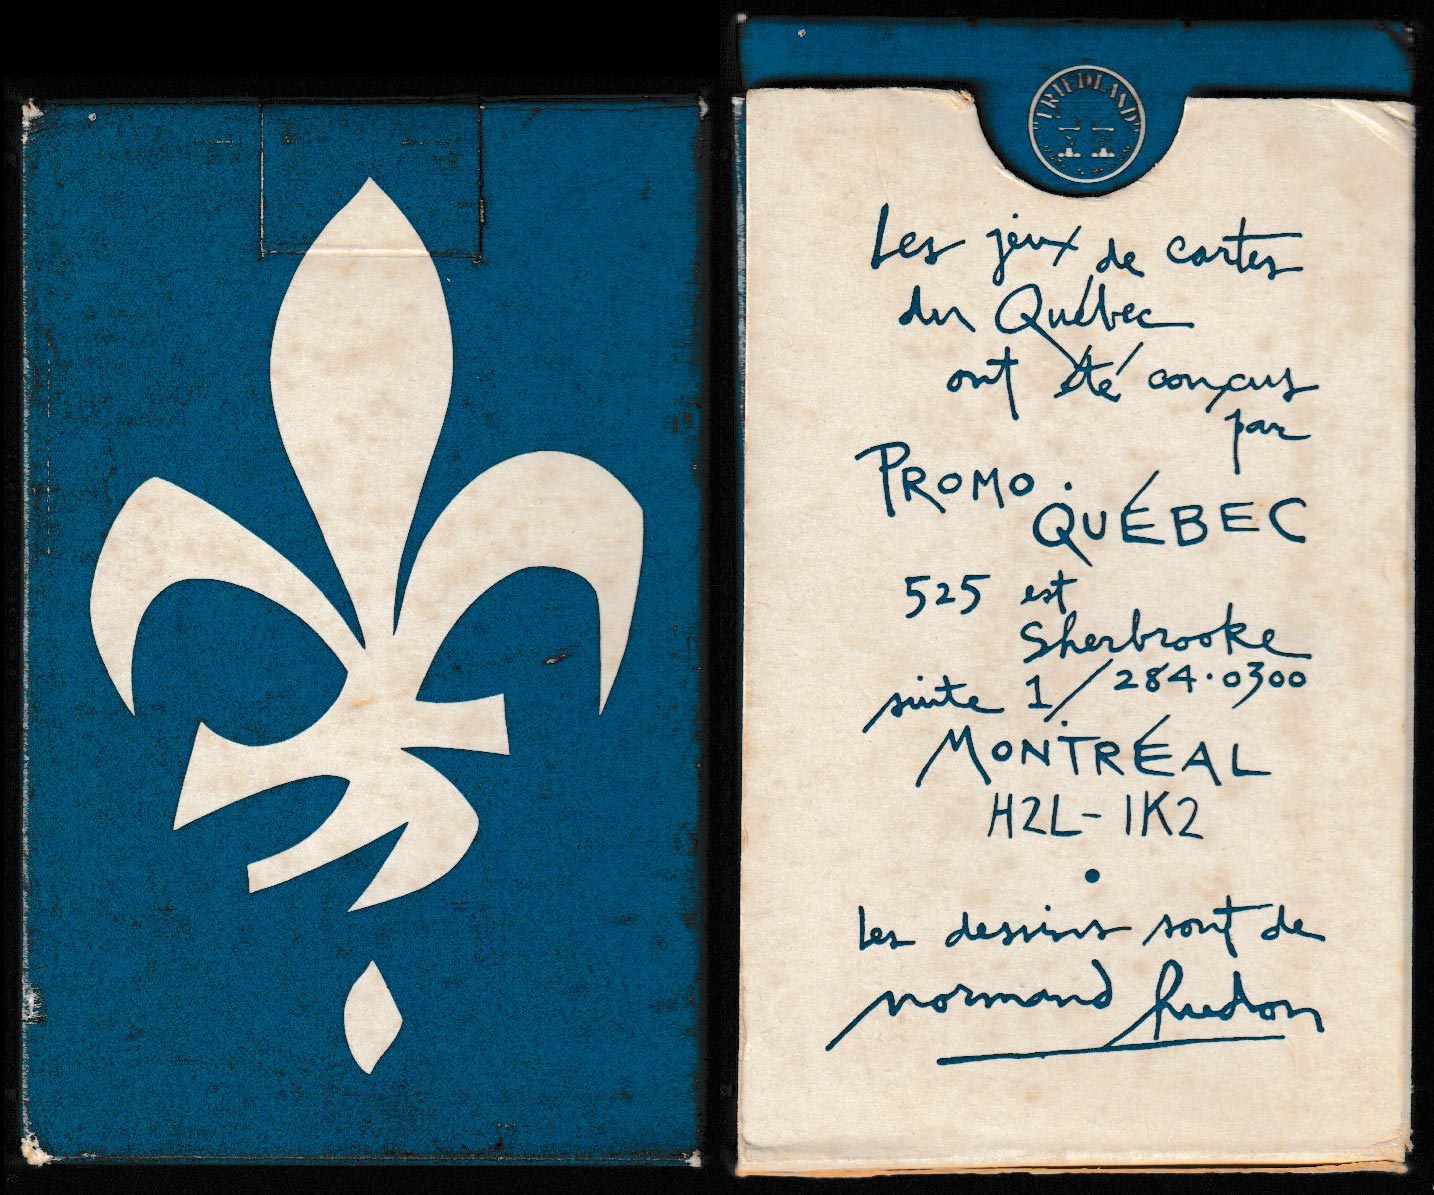 "FRIEDLAND"
Les jeux de cartes
du Québec
ont été conçus
par
PROMO.
QUÉBEC
525 est
Sherbrooke
suite 1/284.0300
MONTRÉAL
H2L-1K2
•
les dessins sont de
normand hudon